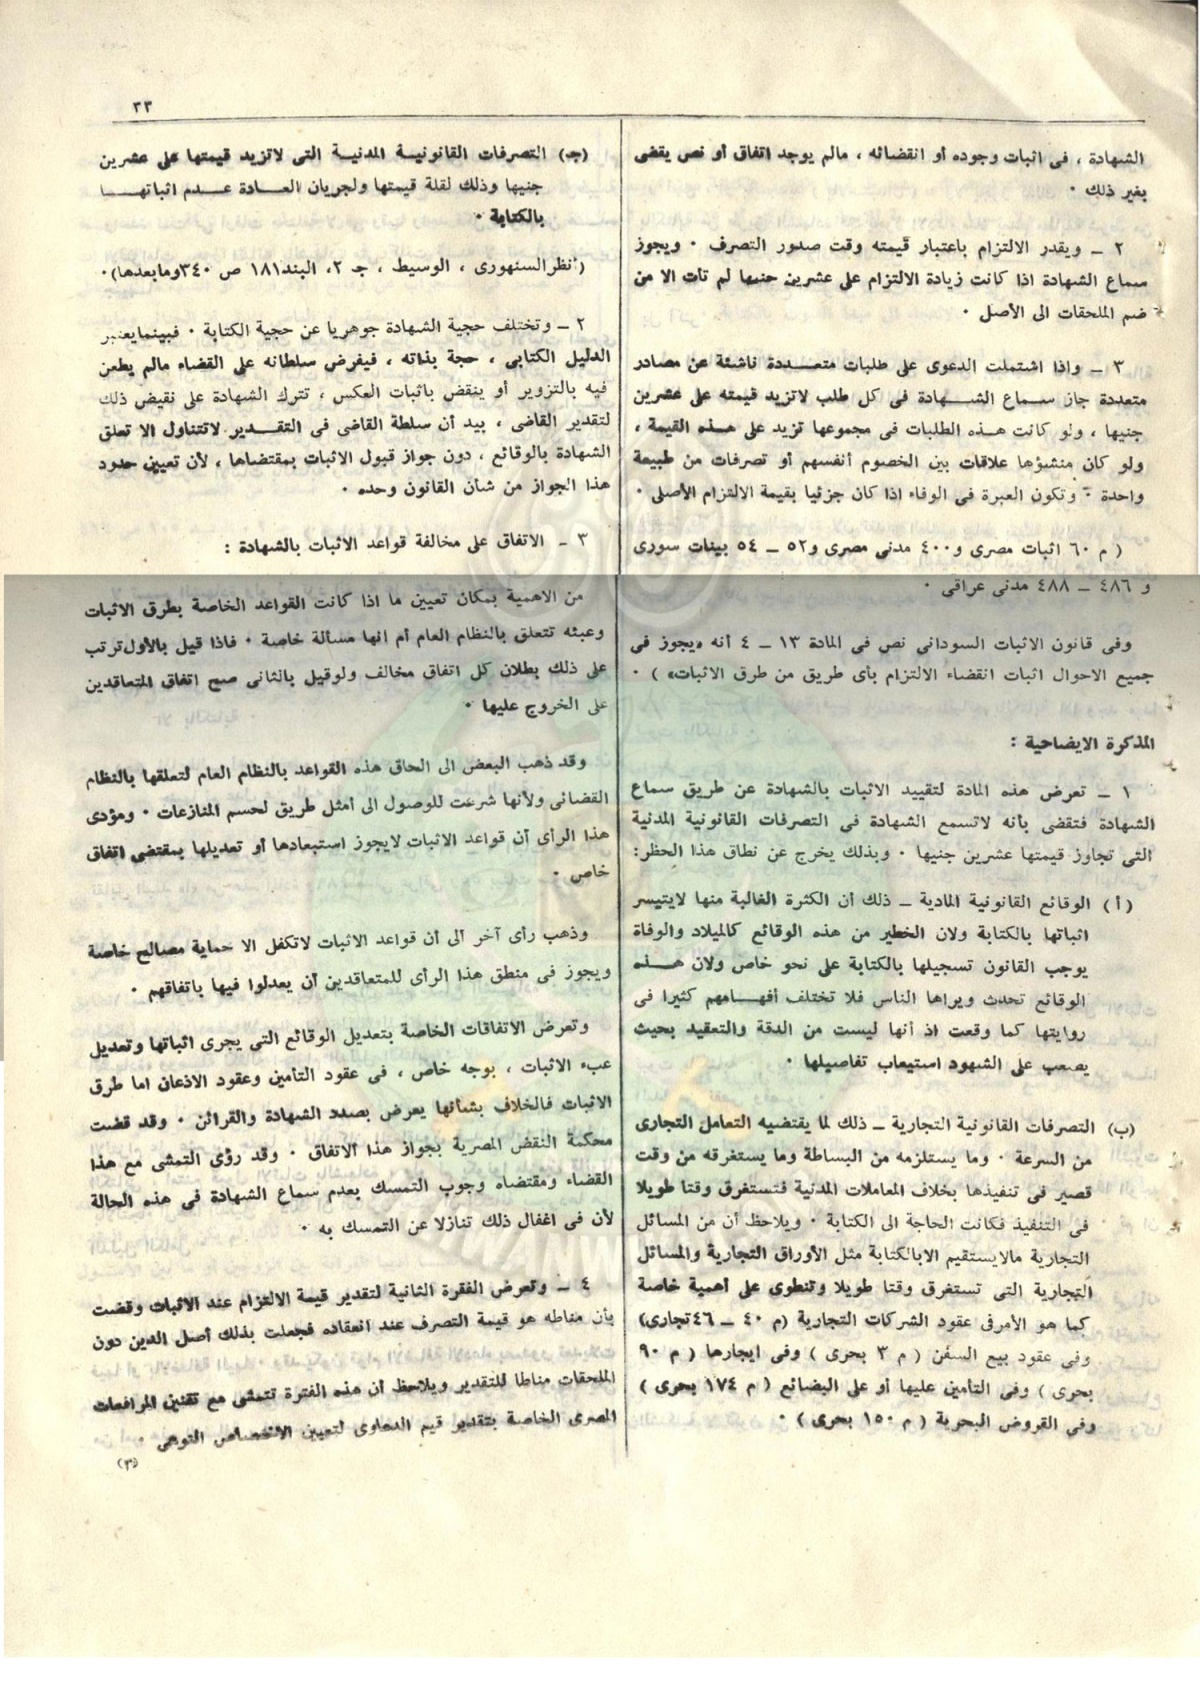 ٣٣
الشهادة ، فى اثبات وجوده أو انقضائه ، مالم يوجد اتفاق أو نص يقضى
بغير ذلك ٠
٢ ــ ويقدر الالتزام باعتبار قيمته وقت صدور التصرف ٠ ويجوز
سماع الشهادة اذا كانت زيادة الالتزام على عشرين جنيها لم تأت الا من
ضم الملحقات الى الأصل ٠
٣ ــ واذا اشتملت الدعوى على طلبات متعـــددة ناشئة عن مصادر
متعددة جاز سماع الشـــهادة فى كل طلب لاتزيد قيمته على عشرين
جنيها ، ولو كانت هـذه الطلبات فى مجموعها تزيد على هـذه القيمة ،
ولو كان منشؤها علاقات بين الخصوم أنفسهم أو تصرفات من طبيعة
واحدة ٠ وتكون العبرة فى الوفاء اذا كان جزئيا بقيمة الالتزام الأصلى ٠
( م ٦٠ اثبات مصرى و٤٠٠ مدنى مصرى و٥٢ ــ ٥٤ بينات سورى
و ٤٨٦ ــ ٤٨٨ مدنى عراقى ٠
وفى قانون الاثبات السودانى نص فى المادة ١٣ ــ ٤ أنه «يجوز فى
جميع الاحوال اثبات انقضاء الالتزام بأى طريق من طرق الاثبات» ) ٠
المذكرة الايضاحية :
١ ــ تعرض هذه المادة لتقييد الاثبات بالشهادة عن طريق سماع
الشهادة فتقضى بأنه لاتسمع الشهادة فى التصرفات القانونية المدنية
التى تجاوز قيمتها عشرين جنيها ٠ وبذلك يخرج عن نطاق هذا الحظر:
( أ ) الوقائع القانونية المادية ــ ذلك أن الكثرة الغالبة منها لايتيسر
اثباتها بالكتابة ولان الخطير من هذه الوقائع كالميلاد والوفاة
يوجب القانون تسجيلها بالكتابة على نحو خاص ولان هـــذه
الوقائع تحدث ويراها الناس فلا تختلف أفهـامهم كثيرا فى
روايتها كما وقعت اذ أنها ليست من الدقة والتعقيد بحيث
يصعب على الشهود استيعاب تفاصيلها ٠
(ب) التصرفات القانونية التجارية ــ ذلك لما يقتضيه التعامل التجارى
من السرعة ٠ وما يستلزمه من البساطة وما يستغرقه من وقت
قصير فى تنفيذها بخلاف المعاملات المدنية فتستغرق وقتا طويلا
فى التنفيذ فكانت الحاجة الى الكتابة ٠ ويلاحظ أن من المسائل
التجارية مالايستقيم الابالكتابة مثل الأوراق التجارية والمسائل
التجارية التى تستغرق وقتا طويلا وتنطوى على أهمية خاصة
كما هو الأمرفى عقود الشركات التجارية (م ٤٠ ــ ٤٦تجارى)
وفى عقود بيع السفن ( م ٣ بحرى ) وفى ايجارها ( م ٩٠
بحرى ) وفى التأمين عليها أو على البضائع ( م ١٧٤ بحرى )
وفى القروض البحرية ( م ١٥٠ بحرى ) ٠
(جـ) التصرفات القانونيـة المدنيـة التى لاتزيد قيمتها على عشرين
جنيها وذلك لقلة قيمتها ولجريان العـادة عـدم اثباتهــا
بالكتابة ٠
(أنظرالسنهورى ، الوسيط ، جـ ٢، البند١٨١ ص ٣٤٠ومابعدها)٠
٢ ــ وتختلف حجية الشهادة جوهريا عن حجية الكتابة ٠ فبينمايعتبر
الدليل الكتابى ، حجة بذاته ، فيفرض سلطانه على القضاء مالم يطعن
فيه بالتزوير أو ينقض باثبات العكس ، تترك الشهادة على نقيض ذلك
لتقدير القاضى ، بيد أن سلطة القاضى فى التقـدير لاتتناول الا تعلق
الشهادة بالوقائع ، دون جواز قبول الاثبات بمقتضاها ، لأن تعيين حدود
هذا الجواز من شأن القانون وحده ٠
٣ ــ الاتفاق على مخالفة قواعد الاثبات بالشهادة :
من الاهمية بمكان تعيين ما اذا كانت القواعد الخاصة بطرق الاثبات
وعبئه تتعلق بالنظام العام أم انها مسألة خاصة ٠ فاذا قيل بالأول ترتب
على ذلك بطلان كل اتفاق مخالف ولوقيل بالثانى صح اتفاق المتعاقدين
على الخروج عليها ٠
وقد ذهب البعض الى الحاق هذه القواعد بالنظام العام لتعلقها بالنظام
القضائى ولأنها شرعت للوصول الى أمثل طريق لحسم المنازعات ٠ ومؤدى
هذا الرأى أن قواعد الاثبات لايجوز استبعادها أو تعديلها بمقتضى اتفاق
خاص ٠
وذهب رأى آخر الى أن قواعد الاثبات لاتكفل الا حماية مصالح خاصة
ويجوز فى منطق هذا الرأى للمتعاقدين أن يعدلوا فيها باتفاقهم ٠
وتعرض الاتفاقات الخاصة بتعديل الوقائع التى يجرى اثباتها وتعديل
عبء الاثبات ، بوجه خاص ، فى عقود التأمين وعقود الاذعان اما طرق
الاثبات فالخلاف بشأنها يعرض بصدد الشهادة والقرائن ٠ وقد قضت
محكمة النقض المصرية بجواز هذا الاتفاق ٠ وقد رؤى التمشى مع هذا
القضاء ومقتضاه وجوب التمسك بعدم سماع الشهادة فى هذه الحالة
لأن فى اغفال ذلك تنازلا عن التمسك به ٠
٤ ــ وتعرض الفقرة الثانية لتقدير قيمة الالتزام عند الاثبات وقضت
بأن مناطه هو قيمة التصرف عند انعقاده فجعلت بذلك أصل الدين دون
الملحقات مناطا للتقدير ويلاحظ أن هذه الفترة تتمشى مع تقنين المرافعات
المصرى الخاصة بتقدير قيم الدعاوى لتعيين الاختصاص النوعى ٠
(٣)